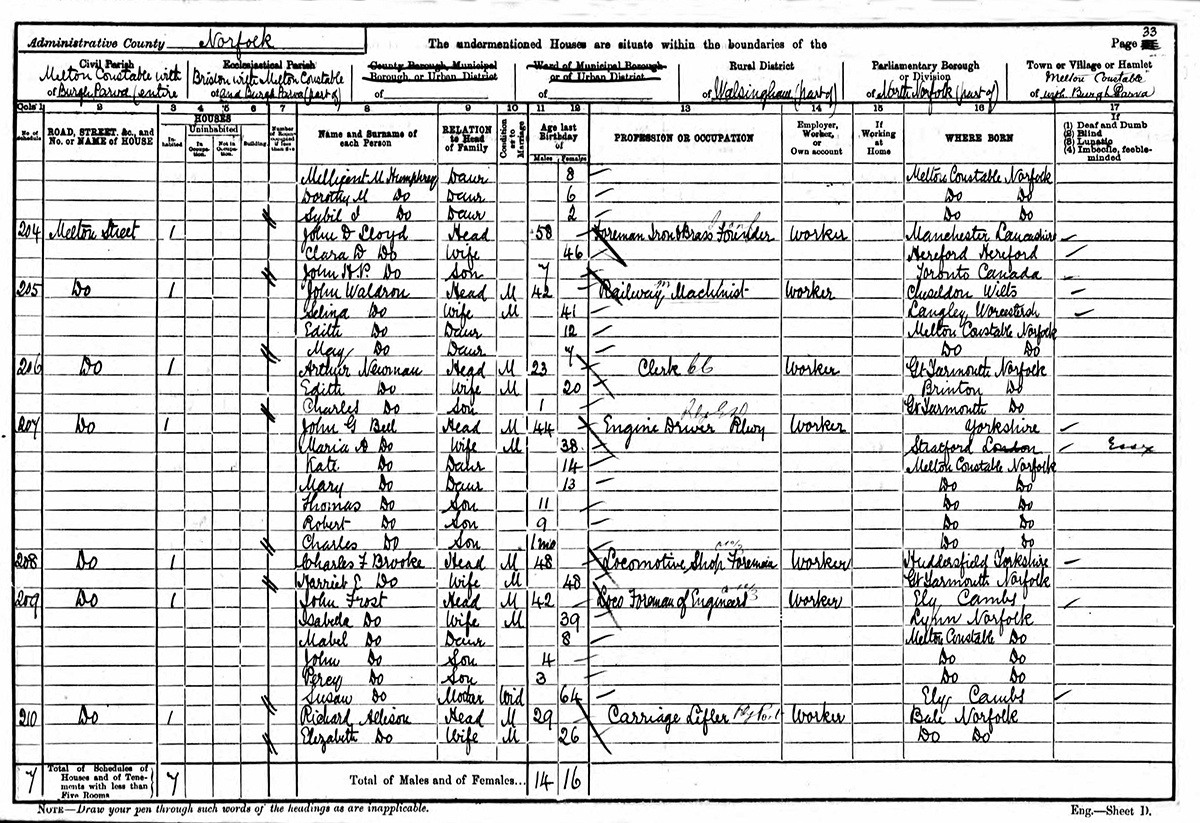 Administrative County Norfolk The undermentioned Houses are situate within the boundaries of the Page 33
Civil Parish Ecclesiastical Parish County Borough, Municipal Borough, or Urban District Ward of Municipal Borough or of Urban District Rural District Parliamentary Borough or Division Town or Village or Hamlet
of Melton Constable with Burgh Parva (entire of Briston with Melton Constable and Burgh Parva (part of) of of of Walsingham (part of) of North Norfolk (part of) of Melton Constable with Burgh Parva
Cols 1 2 3 4 5 6 7 8 9 10 11 12 13 14 15 16 17
No. of Schedule ROAD, STREET, &c., and No. or NAME of HOUSE HOUSES Inhabited Uninhabited In Occupation. Not in Occupation. Building. Number of Rooms if less than five Name and Surname of each Person RELATION to Head of Family Condition as to Marriage Age last Birthday of Males Females PROFESSION OR OCCUPATION Employer, Worker, or Own account If Working at Home WHERE BORN If (1) Deaf and Dumb (2) Blind (3) Lunatic (4) Imbecile, feeble-minded
Millicent M Humphrey Daur 8 Melton Constable Norfolk
Dorothy M Do Daur 6 Do Do
Sybil I Do Daur 2 Do Do
204 Melton Street 1 John D Lloyd Head 58 Foreman Iron & Brass Founder Worker Manchester Lancashire
Clara D Do Wife 46 Hereford Hereford
John H.P. Do Son 7 Toronto Canada
205 Do 1 John Waldron Head M 42 Railway Machinist Worker Chiseldon Wilts
Selina Do Wife M 41 Langley Worcestersh
Edith Do Daur 12 Melton Constable Norfolk
May Do Daur 7 Do Do
206 Do 1 Arthur Newman Head M 23 Clerk Worker Gt Yarmouth Norfolk
Edith Do Wife M 20 Brinton Do
Charles Do Son 1 Gt Yarmouth Do
207 Do 1 John G Bell Head M 44 Engine Driver Rlwy Worker Yorkshire
Maria A Do Wife M 38 Stratford London Essex
Kate Do Daur 14 Melton Constable Norfolk
Mary Do Daur 13 Do Do
Thomas Do Son 11 Do Do
Robert Do Son 9 Do Do
Charles Do Son 1 mo Do Do
208 Do 1 Charles F Brooke Head M 48 Locomotive Shop Foreman Worker Huddersfield Yorkshire
Harriet E Do Wife M 48 Gt Yarmouth Norfolk
209 Do 1 John Frost Head M 42 Loco Foreman of Engineers Worker Ely Cambs
Isabella Do Wife M 39 Lynn Norfolk
Mabel Do Daur 8 Melton Constable Do
John Do Son 4 Do Do
Percy Do Son 3 Do Do
Susan Do Mother Wid 64 Ely Cambs
210 Do 1 Richard Allison Head M 29 Carriage Lifter Worker Bale Norfolk
Elizabeth Do Wife M 26 Do Do
7 Total of Schedules of Houses and of Tenements with less than Five Rooms 7 Total of Males and of Females... 14 16
NOTE—Draw your pen through such words of the headings as are inapplicable. Eng.—Sheet D.